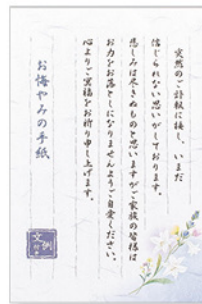 突然のご訃報に接し、いまだ
信じられない思いがしております。
悲しみは尽きぬものと思いますがご家族の皆様は
お力をお落としになりませんようご自愛ください。
心よりご冥福をお祈り申し上げます。
お悔やみの手紙
文例
付き